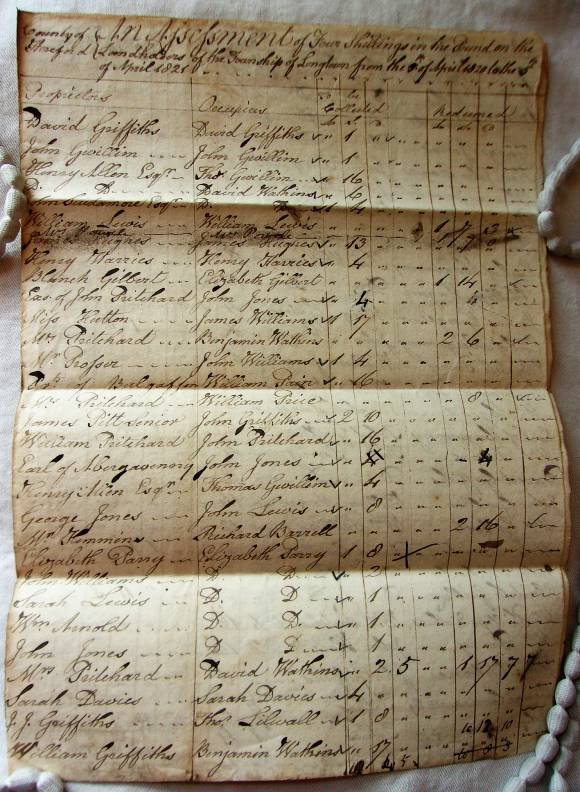 County of Hereford An Assessment of Four Shillings in the Pound on the
Landholders of the Township of Longtown from the 5th of April 1820 to the 5th
of April 1821
Proprietors Occupiers to be Collected Redeemed
David Griffiths David Griffiths 1
John Gwillim John Gwillim 1
Henry Allen Esqr Thos Gwillim 16
Do Do David Watkins 6
Scudamore Esqr Do Do 4
William Lewis William Lewis 1 7
James Hughes James Hughes 13
Henry Harries Henry Harries 4
Blanch Gilbert Elizabeth Gilbert 1 14
Exs of John Pritchard John Jones 4
Miss Hutton James Williams 1 17
Mrs Pritchard Benjamin Watkins 2 6
Mr Prosser John Williams 1 4
William Parr 16
Mrs Pritchard William Price 8
James Pitt Senior John Griffiths 2 10
William Pritchard John Pritchard 16
Earl of Abergavenny John Jones 4 4
Henry Allen Esqr Thomas Gwillim 4
George Jones John Lewis 8
Mr Hemmins Richard Barrell 2 16
Elizabeth Parry Elizabeth Parry 1 8
John Williams Do Do 2
Sarah Lewis Do Do 1
Wm Arnold Do Do 1
John Jones Do Do 1
Mrs Pritchard David Watkins 2 5 1 17 7
Sarah Davies Sarah Davies 4
J. J. Griffiths Thos Lilwall 1 8
William Griffiths Benjamin Watkins 17